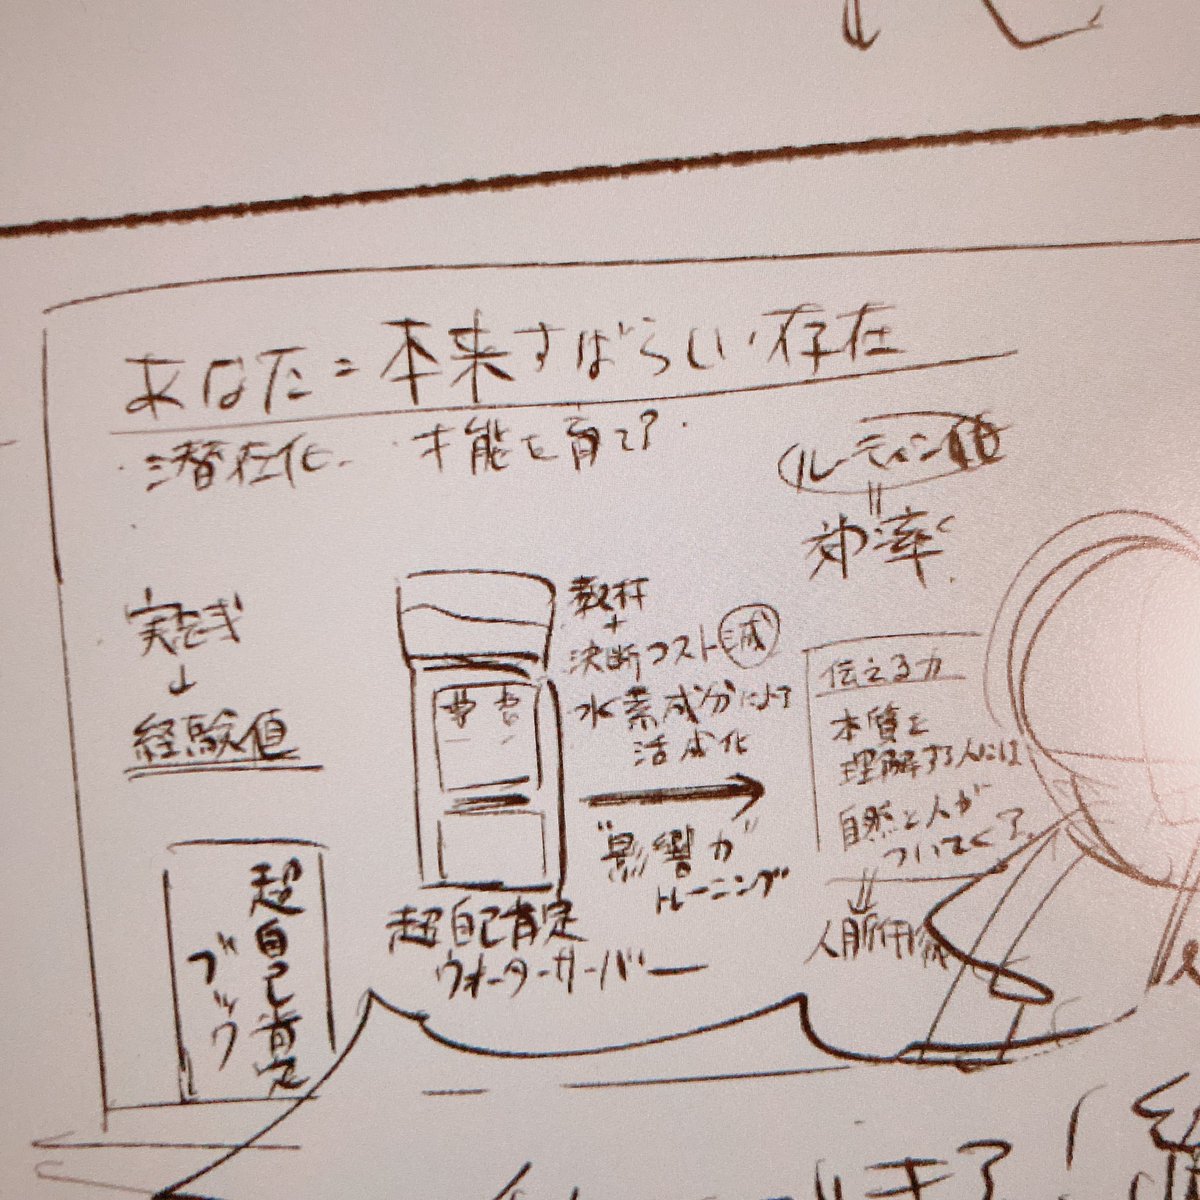 あなた=本来すばらしい存在
潜在化 才能を育てる
ルーティン化
効率
実践
経験値
教材
+
決断コスト減
水素成分によって
活性化
"影響力"
トレーニング
超自己肯定
ウォーターサーバー
超自己肯定
ブック
伝える力
本質を
理解する人には
自然と人が
ついてくる
人脈